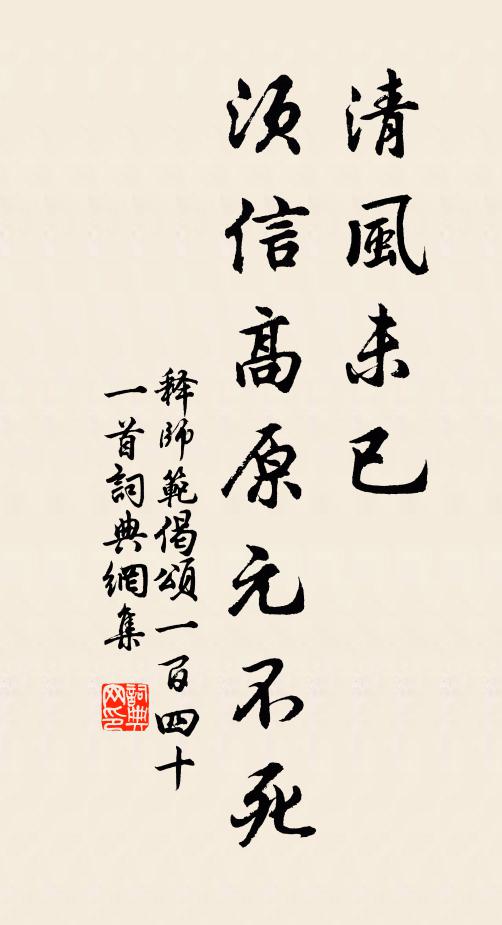 清風未已
須信高原元不死
释師範偈頌一百四十
一首詞典網集
詞典
网印